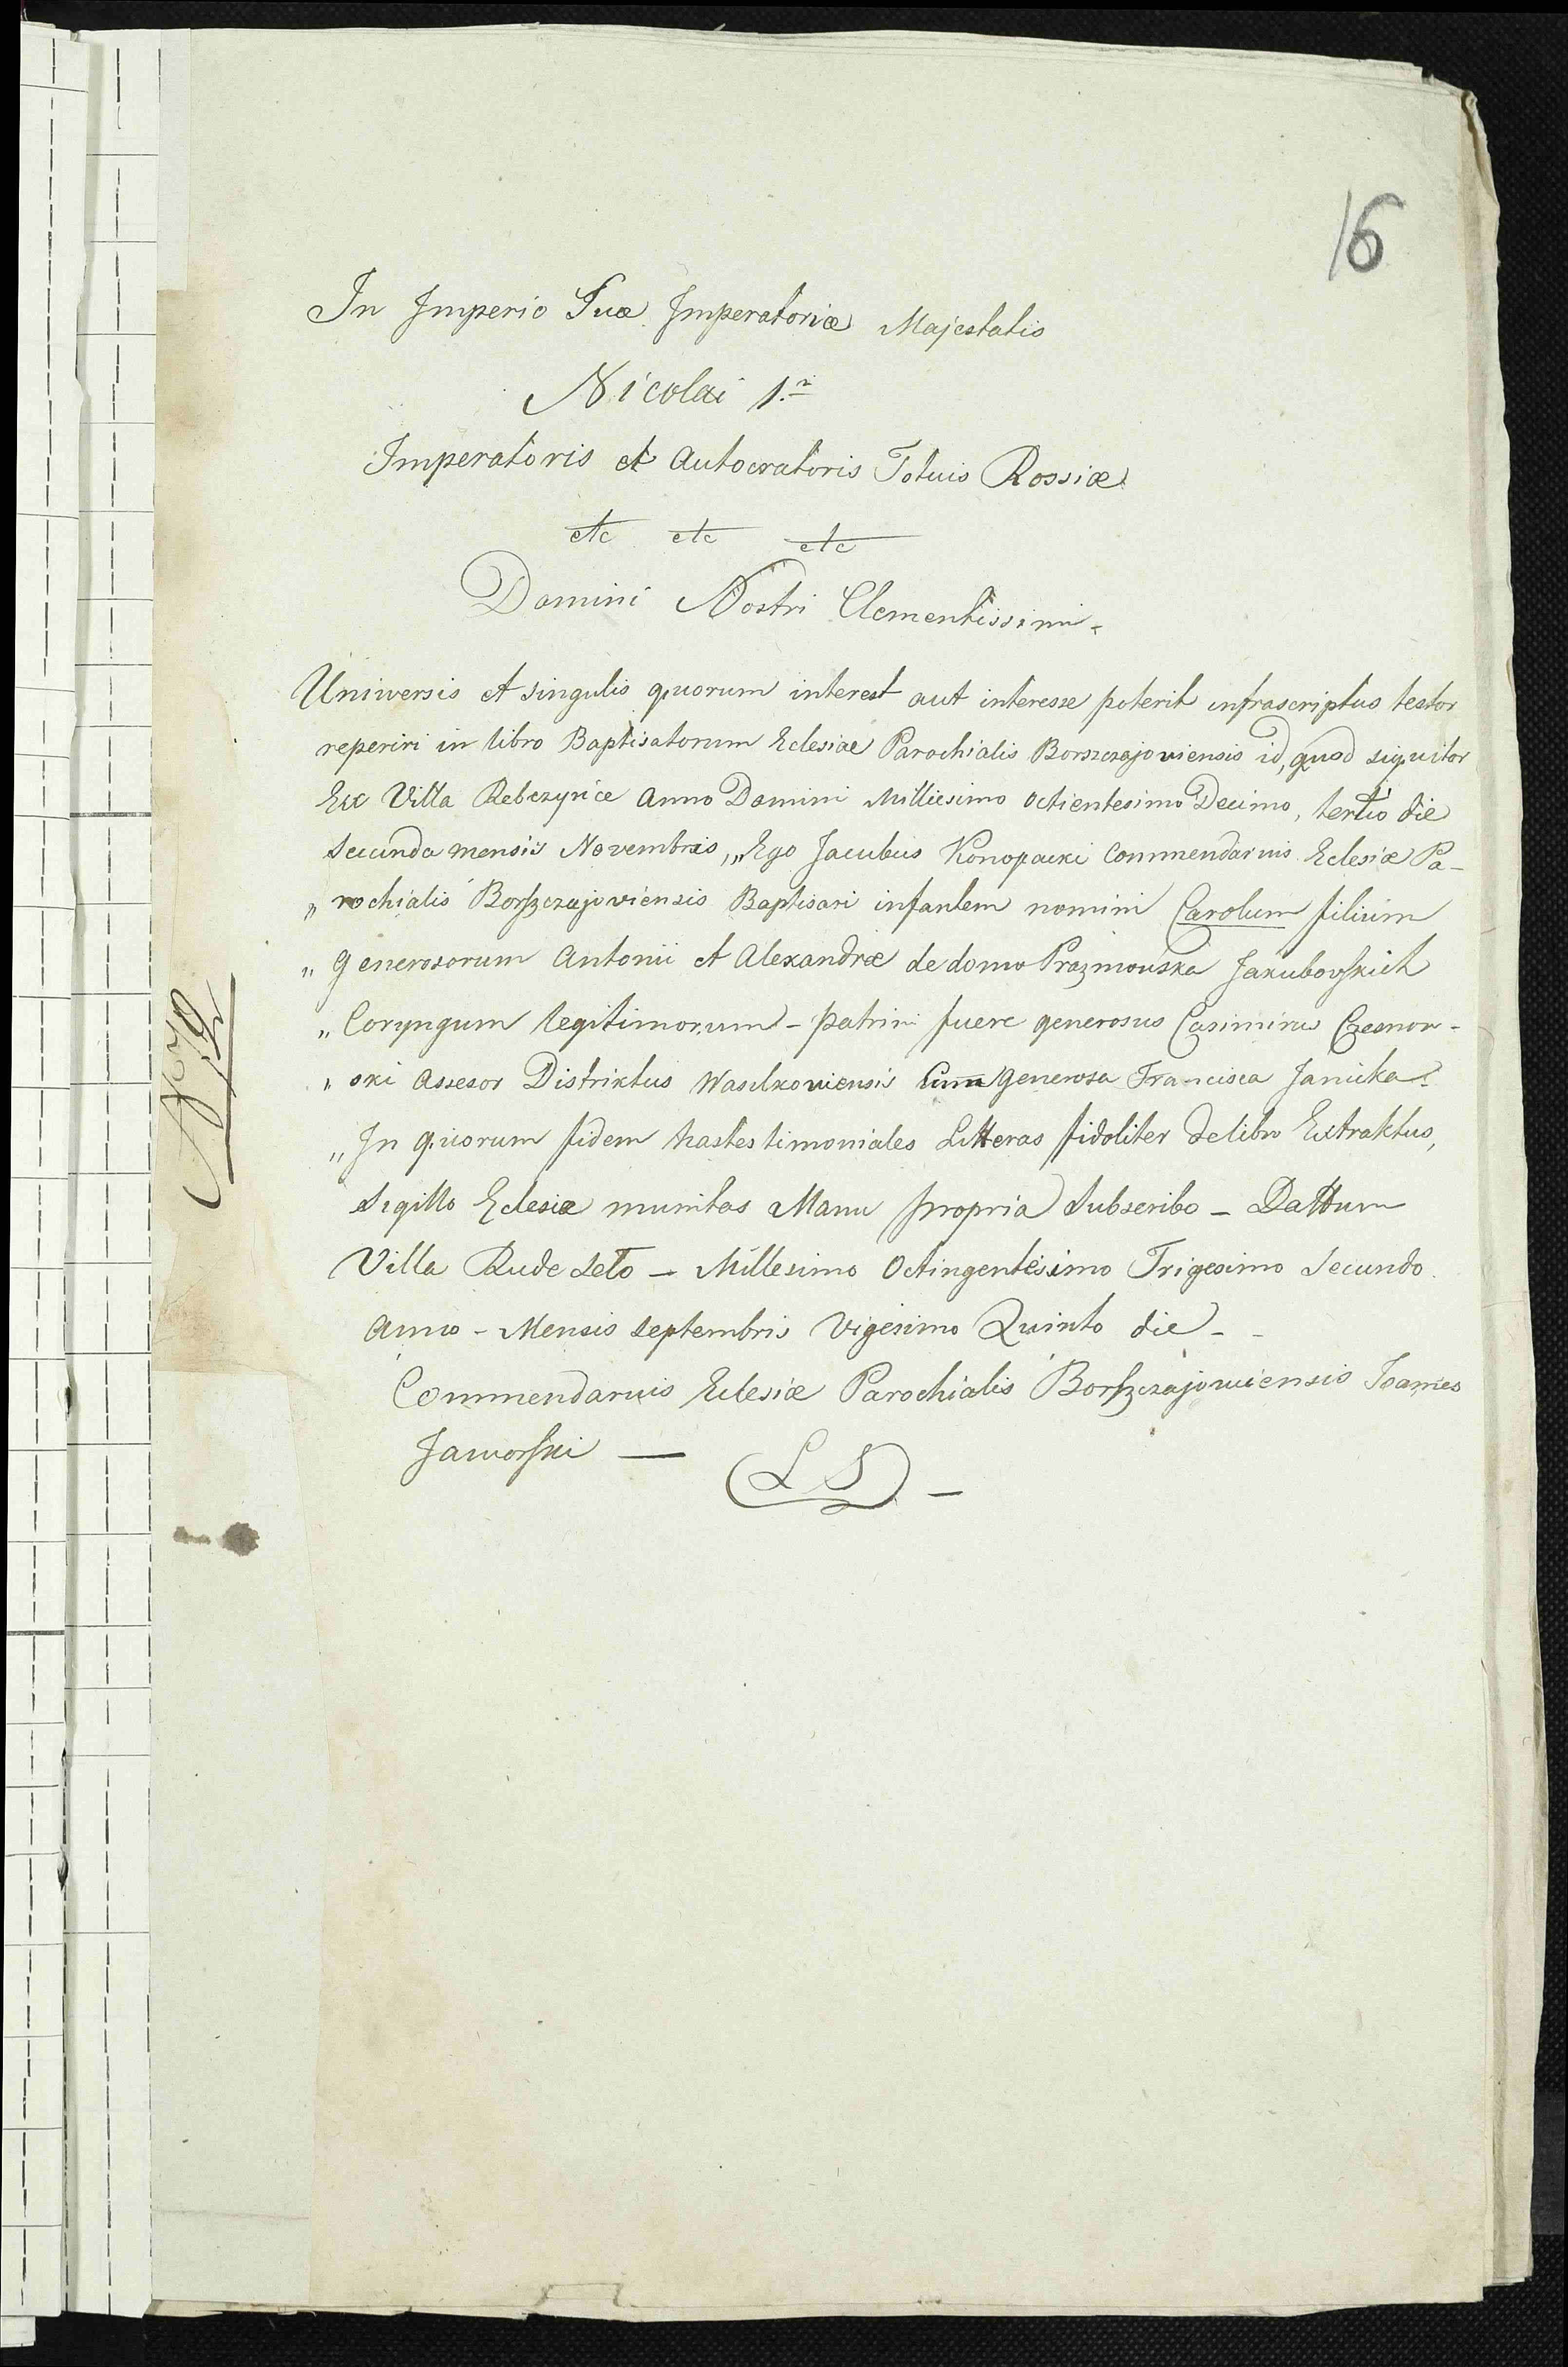 16
In Imperio Suæ Imperatoriæ Majestatis
Nicolai 1.
Imperatoris et Autocratoris Totuis Rossiæ
etc etc etc
Domini Nostri Clementissimi.
Universis et singulis quorum interest aut interesse poterit infrascriptus testor
reperiri in libro Baptisatorum Eclesiae Parochialis Borszczajoviensis id, quod siquitor
Ex Villa Rebczynce Anno Domini Milliesimo Octientesimo Decimo, tertio die
Secunda mensis Novembris, „Ego Jacubus Konopacki Commendarius Eclesiæ Pa-
„ rochialis Borszczajoviensis Baptisavi infantem nomini Carolum filium
„ Generosorum Antonii et Alexandræ de domo Prazmouska Jakubovskich
„ Coryngum legitimorum - patrini fuere generosus Casimirus Czesnow-
„ ski Assesor Distriktus Wasilkoviensis Cum Generosa Francisca Janicka
„ In quorum fidem has testimoniales Litteras fidoliter de libro Extraktus,
Sigillo Eclesiæ munitas Manu propria Subscribo - Dattum
Villa Rude Seło - Millesimo Octingentesimo Trigesimo Secundo
Anno - Mensis Septembris Vigesimo Quinto die -
Commendarius Eclesiæ Parochialis Borszczajowiensis Joannes
Jaworski — LS -